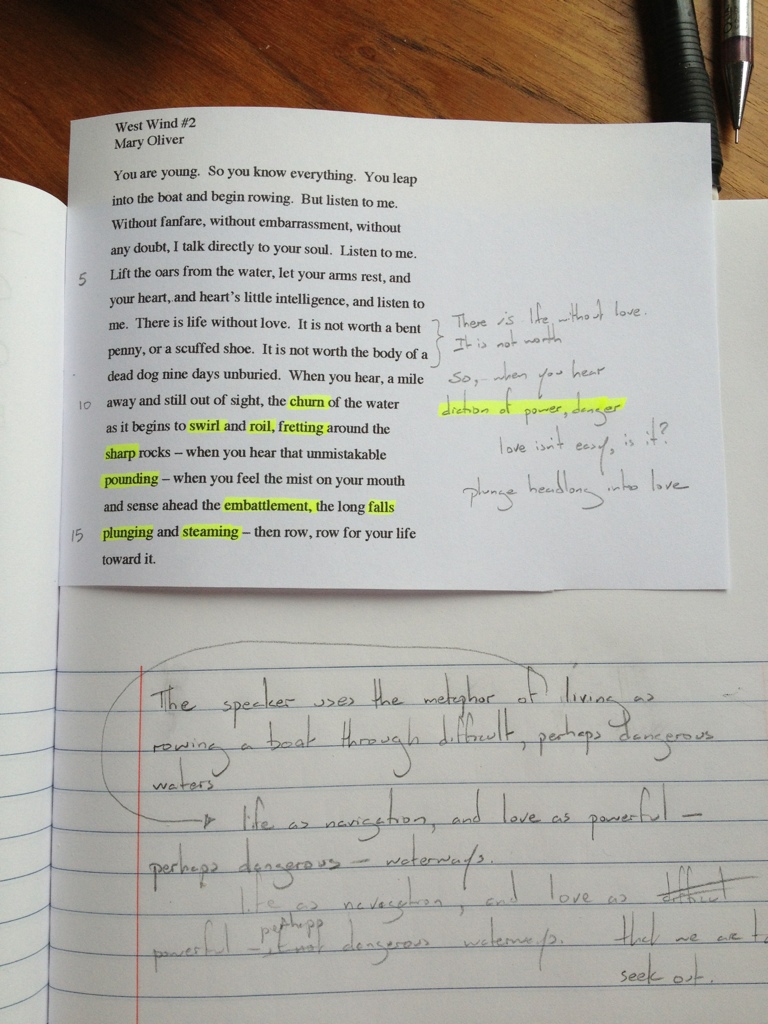 West Wind #2
Mary Oliver
You are young. So you know everything. You leap
into the boat and begin rowing. But listen to me.
Without fanfare, without embarrassment, without
any doubt, I talk directly to your soul. Listen to me.
5 Lift the oars from the water, let your arms rest, and
your heart, and heart's little intelligence, and listen to
me. There is life without love. It is not worth a bent
penny, or a scuffed shoe. It is not worth the body of a
dead dog nine days unburied. When you hear, a mile
10 away and still out of sight, the churn of the water
as it begins to swirl and roil, fretting around the
sharp rocks – when you hear that unmistakable
pounding – when you feel the mist on your mouth
and sense ahead the embattlement, the long falls
15 plunging and steaming – then row, row for your life
toward it.
There is life without love.
It is not worth
So, when you hear
diction of power, danger
love isn't easy, is it?
plunge headlong into love
The speaker uses the metaphor of living as
rowing a boat through difficult, perhaps dangerous
waters
life as navigation, and love as powerful –
perhaps dangerous – waterways.
life as navagation, and love as difficult
perhapp
powerful – if not dangerous waterways. that we are to
seek out.